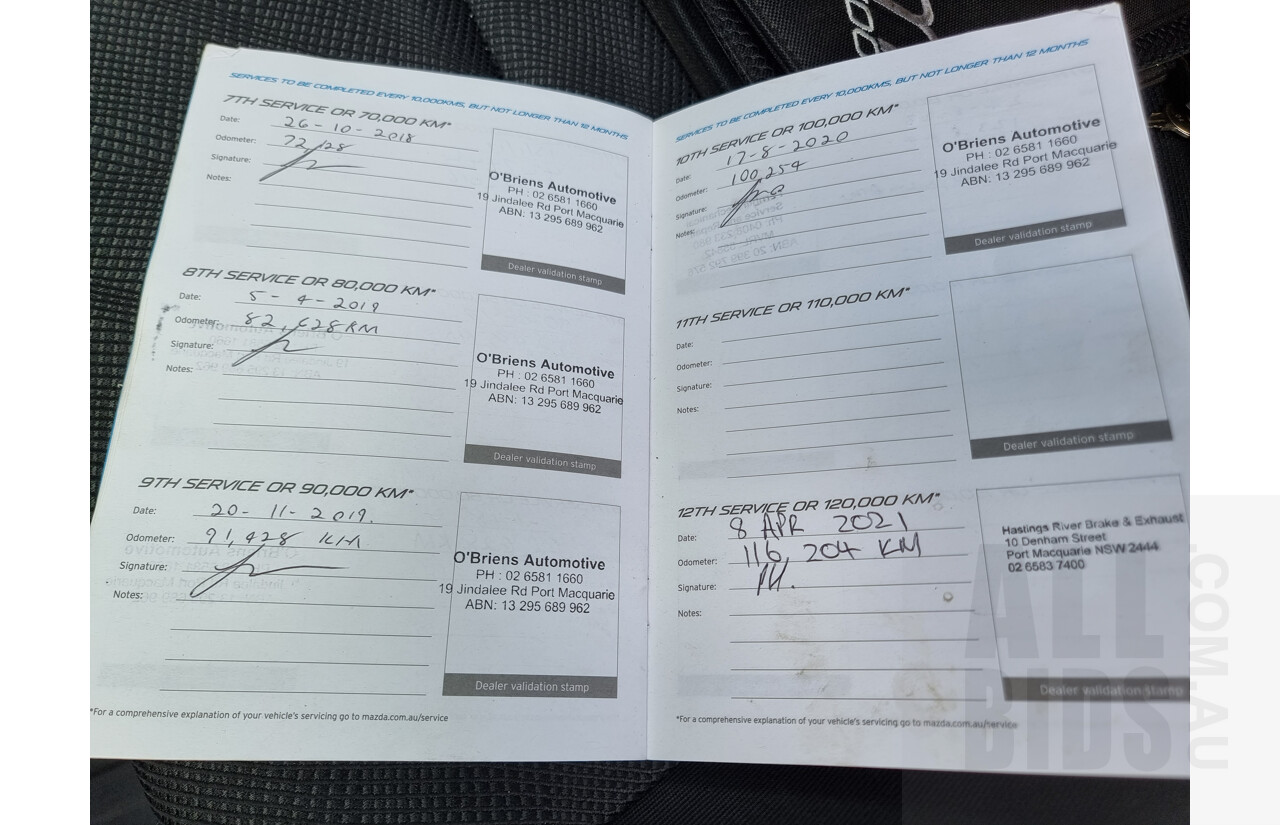 SERVICES TO BE COMPLETED EVERY 10,000KMS, BUT NOT LONGER THAN 12 MONTHS
7TH SERVICE OR 70,000 KM*
Date: 26-10-2018
Odometer:
Signature:
Notes:
O'Briens Automotive
PH : 02 6581 1660
19 Jindalee Rd Port Macquarie
ABN: 13 295 689 962
Dealer validation stamp
8TH SERVICE OR 80,000 KM*
Date: 5-4-2019
Odometer: 82,628KM
Signature:
Notes:
O'Briens Automotive
PH : 02 6581 1660
19 Jindalee Rd Port Macquarie
ABN: 13 295 689 962
Dealer validation stamp
9TH SERVICE OR 90,000 KM*
Date: 20-11-2019.
Odometer: 91,428 KM
Signature:
Notes:
O'Briens Automotive
PH : 02 6581 1660
19 Jindalee Rd Port Macquarie
ABN: 13 295 689 962
Dealer validation stamp
*For a comprehensive explanation of your vehicle's servicing go to mazda.com.au/service
SERVICES TO BE COMPLETED EVERY 10,000KMS, BUT NOT LONGER THAN 12 MONTHS
10TH SERVICE OR 100,000 KM*
Date: 17-8-2020
Odometer: 100,254
Signature:
Notes:
O'Briens Automotive
PH : 02 6581 1660
19 Jindalee Rd Port Macquarie
ABN: 13 295 689 962
Dealer validation stamp
11TH SERVICE OR 110,000 KM*
Date:
Odometer:
Signature:
Notes:
Dealer validation stamp
12TH SERVICE OR 120,000 KM*
Date: 8 APR 2021
Odometer: 116,204 KM
Signature:
Notes:
Hastings River Brake & Exhaust
10 Denham Street
Port Macquarie NSW 2444
02 6583 7400
Dealer validation stamp
*For a comprehensive explanation of your vehicle's servicing go to mazda.com.au/service
ALL
BIDS
.COM.AU